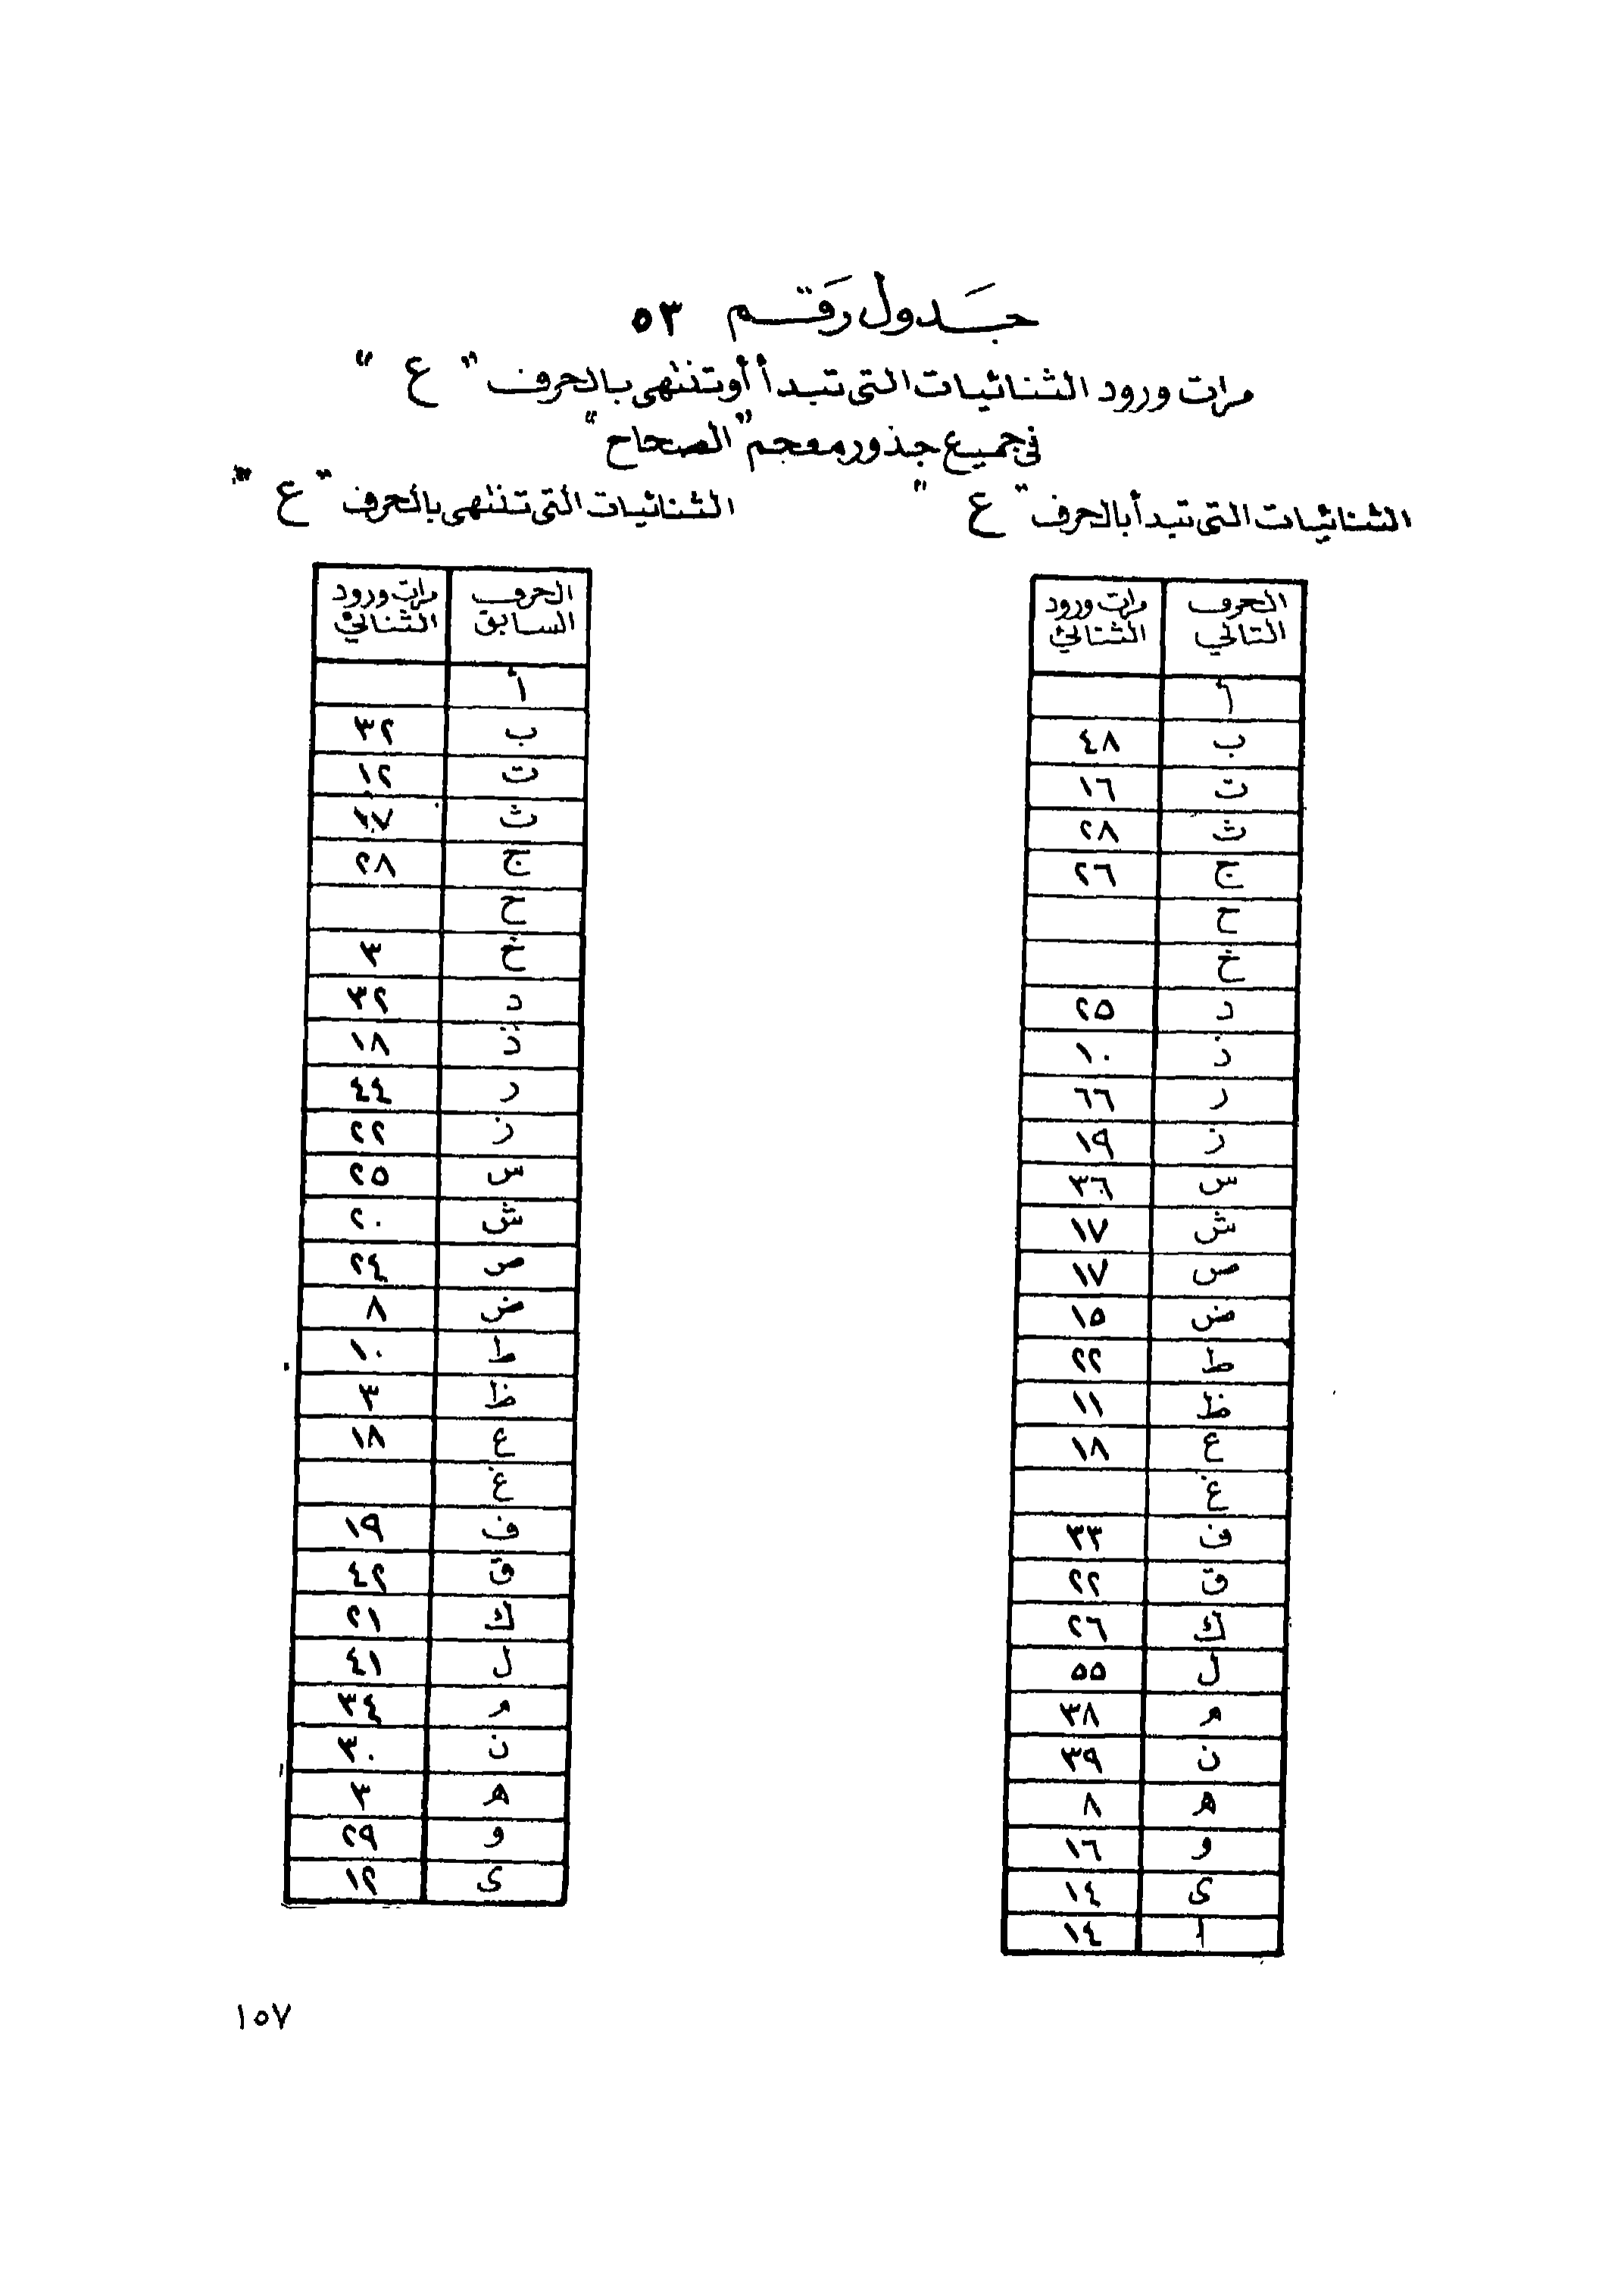 جدول رقم ٥٣
مرات ورود الثنائيات التى تبدأ أو تنتهى بالحرف " ع "
فى جميع جذور معجم "الصحاح"
الثنائيات التى تبدأ بالحرف " ع "
الحرف التالي | مرات ورود الثنائي
أ |
ب | ٤٨
ت | ١٦
ث | ٢٨
ج | ٢٦
ح |
خ |
د | ٢٥
ذ | ١٠
ر | ٦٦
ز | ١٩
س | ٣٦
ش | ١٧
ص | ١٧
ض | ١٥
ط | ٢٢
ظ | ١١
ع | ١٨
غ |
ف | ٣٣
ق | ٢٢
ك | ٢٦
ل | ٥٥
م | ٣٨
ن | ٣٩
ه | ٨
و | ١٦
ى | ١٤
ا | ١٤
الثنائيات التى تنتهى بالحرف " ع "
الحرف السابق | مرات ورود الثنائي
أ |
ب | ٣٢
ت | ١٢
ث |
ج | ٢٨
ح |
خ | ٣
د | ٣٢
ذ | ١٨
ر | ٤٤
ز | ٢٢
س | ٢٥
ش | ٢٠
ص | ٢٤
ض | ٨
ط | ١٠
ظ | ٣
ع | ١٨
غ |
ف | ١٩
ق | ٤٢
ك | ٢١
ل | ٤١
م | ٣٤
ن | ٣٠
ه | ٣
و | ٢٩
ى | ١٢
١٥٧